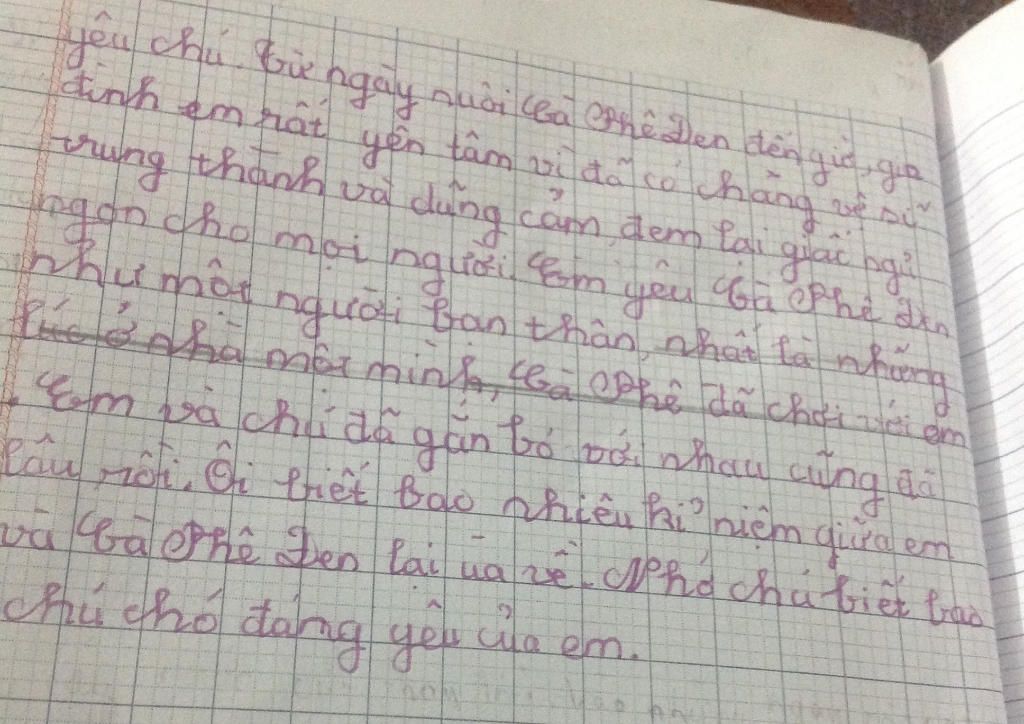 yêu chú. Từ ngày nuôi Cà Phê Đen đến giờ, gia
đình em rất yên tâm vì đã có chàng vệ sĩ
trung thành và dũng cảm, đem lại giấc ngủ
ngon cho mọi người. Em yêu Cà Phê Đen
như một người bạn thân, nhất là những
lúc ở nhà một mình, Cà Phê đã chơi với em
. Em và chú đã gắn bó với nhau cũng đã
lâu rồi. Ôi biết bao nhiêu kỉ niệm giữa em
và Cà Phê Đen lại ùa về. Nhớ chú biết bao
chú chó đáng yêu của em.